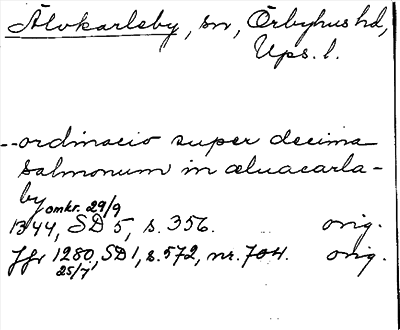 Älvkarleby, sn, Örbyhus hd,
Ups. l.
--ordinacio super decima
salmonum in æluacarla-
by
omkr. 29/9
1344, SD 5, s. 356. orig.
Jfr 1280, SD 1, s. 572, nr. 704. orig.
25/7